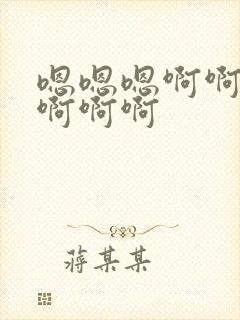 嗯嗯嗯啊啊
啊啊啊
蒋某某